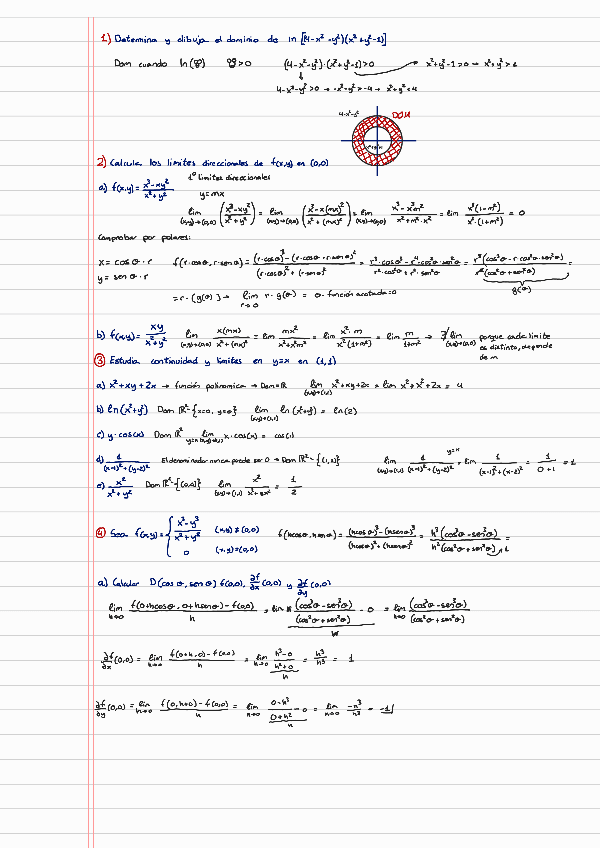 1) Determina y dibuja el dominio de ln [(4-x²-y²)(x²+y²-1)]
Dom cuando ln(g) g>0 (4-x²-y²)·(x²+y²-1)>0 → x²+y²-1>0 → x²+y²>1
4-x²-y²>0 → -x²-y²>-4 → x²+y²<4
4-x²-y²
DOM
2) Calcula los limites direccionales de f(x,y) en (0,0)
a) f(x,y)= (x³-xy²)/(x²+y²) 1º limites direccionales
y=mx
lim (x,y)→(0,0) ((x³-xy²)/(x²+y²)) = lim (x,y)→(0,0) ((x³-x(mx)²)/(x²+(mx)²)) = lim (x,y)→(0,0) (x³-x³m²)/(x²+m²·x²) = lim (x³(1-m²))/(x²·(1+m²)) = 0
Comprobar por polares:
x = cosθ·r
y = senθ·r
f(r·cosθ, r·senθ) = ((r·cosθ)³-(r·cosθ·r·senθ)²)/((r·cosθ)²+(r·senθ)²) = (r³·cosθ³-r⁴·cosθ²·senθ²)/(r²·cosθ²+r²·sen²θ) = (r³(cos³θ-r·cos²θ·sen²θ))/(r²(cos²θ+sen²θ)) =
g(θ)
= r·(g(θ)) → lim r→0 r·g(θ) = 0·función acotada=0
b) f(x,y)= xy/(x²+y²) lim (x,y)→(0,0) x(mx)/(x²+(mx)²) = lim mx²/(x²+x²m²) = lim x²·m/(x²(1+m²)) = lim m/(1+m²) → ∄ lim (x,y)→(0,0) porque cada limite
es distinto, depende
de m
3) Estudia continuidad y limites en y=x en (1,1)
a) x²+xy+2x → función polinomica → Dom=ℝ lim (x,y)→(1,1) x²+xy+2x = lim x²+x²+2x = 4
b) ln(x²+y²) Dom ℝ²-{x=0, y=0} lim (x,y)→(1,1) ln(x²+y²) = ln(2)
c) y·cos(x) Dom ℝ² lim y=x (x,y)→(1,1) x·cos(x) = cos(1)
d) 1/((x-1)²+(y-2)²) El denominador nunca puede ser 0 → Dom ℝ²-{(1,2)} lim (x,y)→(1,1) 1/((x-1)²+(y-2)²) y=x = lim 1/((x-1)²+(x-2)²) = 1/(0+1) = 1
e) x²/(x²+y²) Dom ℝ²-{(0,0)} lim (x,y)→(1,1) x²/(x²+x²) = 1/2
4) Sea f(x,y)= { (x³-y³)/(x²+y²) (x,y)≠(0,0)
0 (x,y)=(0,0)
f(hcosθ, hsenθ) = ((hcosθ)³-(hsenθ)³)/((hcosθ)²+(hsenθ)²) = (h³(cos³θ-sen³θ))/(h²(cos²θ+sen²θ)) = 1
a) Calcular D(cosθ, senθ) f(0,0), ∂f/∂x (0,0) y ∂f/∂y (0,0)
lim h→0 (f(0+hcosθ, 0+hsenθ)-f(0,0))/h = lim (h (cos³θ-sen³θ)/(cos²θ+sen²θ) - 0)/h = lim h→0 (cos³θ-sen³θ)/(cos²θ+sen²θ)
∂f/∂x (0,0) = lim h→0 (f(0+h,0)-f(0,0))/h = lim h→0 ((h³-0)/(h²+0))/h = h³/h³ = 1
∂f/∂y (0,0) = lim h→0 (f(0,h+0)-f(0,0))/h = lim h→0 ((0-h³)/(0+h²)-0)/h = lim h→0 -h³/h³ = -1